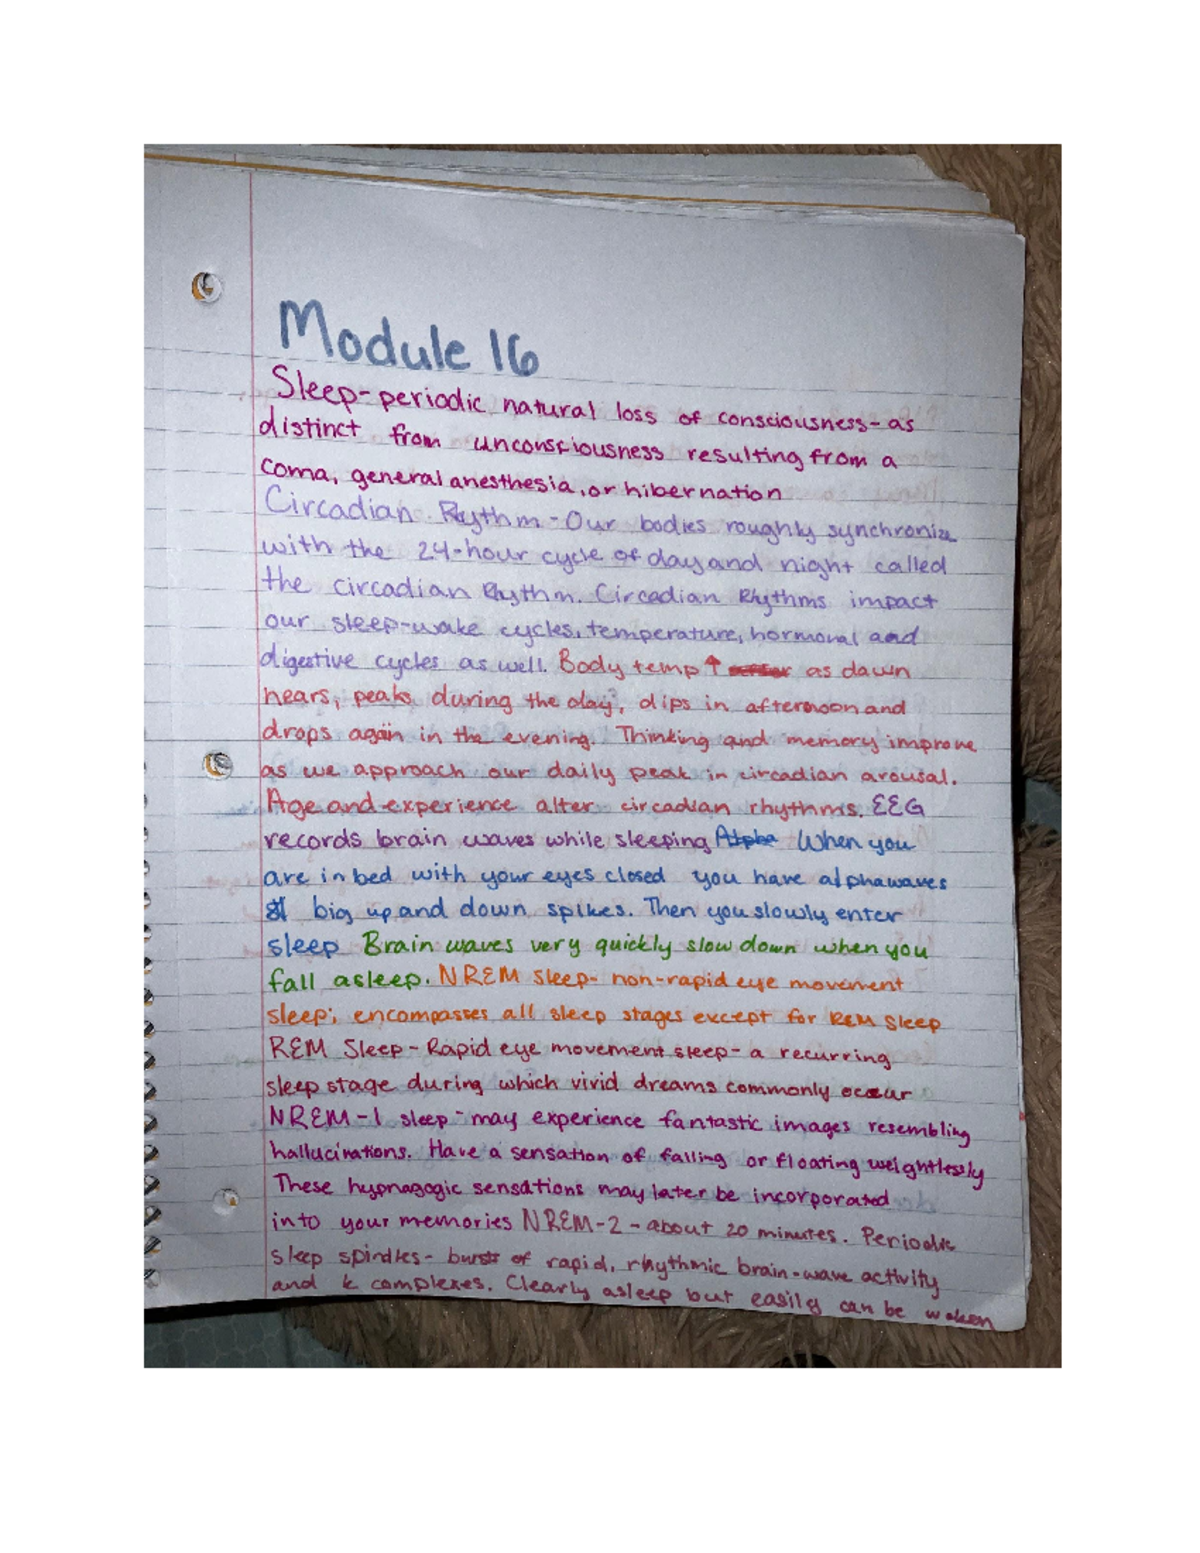 Module 16
Sleep-periodic natural loss of consciousness- as
distinct from unconsciousness resulting from a
coma, general anesthesia, or hibernation
Circadian Rhythm - Our bodies roughly synchronize
with the 24-hour cycle of day and night called
the circadian Rhythm. Circadian Rhythms impact
our sleep-wake cycles, temperature, hormonal and
digestive cycles as well. Body temp ↑ as dawn
nears, peaks during the day, dips in afternoon and
drops again in the evening. Thinking and memory improve
as we approach our daily peak in circadian arousal.
Age and experience alter circadian rhythms. EEG
records brain waves while sleeping Alpha When you
are in bed with your eyes closed you have alphawaves
big up and down spikes. Then you slowly enter
sleep Brain waves very quickly slow down when you
fall asleep. NREM sleep- non-rapid eye movement
sleep; encompasses all sleep stages except for REM sleep
REM Sleep - Rapid eye movement sleep- a recurring
sleep stage during which vivid dreams commonly occur
NREM-1 sleep - may experience fantastic images resembling
hallucinations. Have a sensation of falling or floating weightlessly
These hypnagogic sensations may later be incorporated
into your memories NREM-2 - about 20 minutes. Periodic
sleep spindles- bursts of rapid, rhythmic brain-wave activity
and k complexes. Clearly asleep but easily can be woken